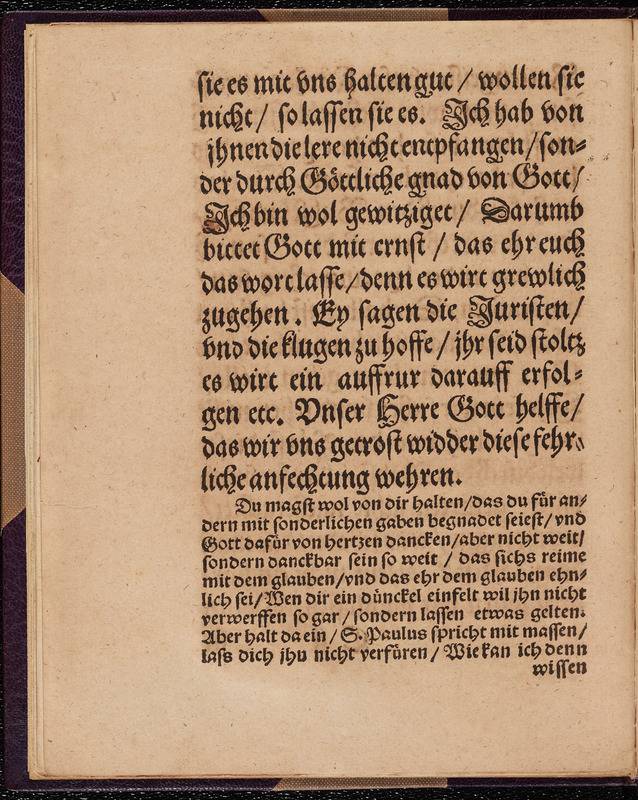 sie es mit vns halten gut / wollen sie
nicht / so lassen sie es. Ich hab von
jhnen die lere nicht entpfangen / son⸗
der durch Göttliche gnad von Gott /
Ich bin wol gewitziget / Darumb
bittet Gott mit ernst / das ehr euch
das wort lasse / denn es wirt grewlich
zugehen. Ey sagen die Juristen /
vnd die klugen zu hoffe / jhr seid stoltz
es wirt ein auffrur darauff erfol⸗
gen etc. Vnser Herre Gott helffe /
das wir vns getrost widder diese fehr⸗
liche anfechtung wehren.
Du magst wol von dir halten / das du für an⸗
dern mit sonderlichen gaben begnadet seiest / vnd
Gott dafür von hertzen dancken / aber nicht weit /
sondern danckbar sein so weit / das sichs reime
mit dem glauben / vnd das ehr dem glauben ehn⸗
lich sei / Wen dir ein dünckel einfelt wil jhn nicht
verwerffen so gar / sondern lassen etwas gelten.
Aber halt da ein / S. Paulus spricht mit massen /
lass dich jhn nicht verfüren / Wie kan ich denn
wissen